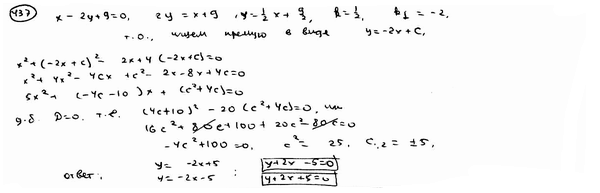 437 x - 2y + 9 = 0, 2y = x + 9, y = 1/2 x + 9/2, k = 1/2, k₁ = -2,
т.о., ищем прямую в виде y = -2x + C,
x² + (-2x + c)² - 2x + 4(-2x + c) = 0
x² + 4x² - 4cx + c² - 2x - 8x + 4c = 0
5x² + (-4c - 10)x + (c² + 4c) = 0
д.б. D = 0, т.е. (4c + 10)² - 20(c² + 4c) = 0, или
16c² + 80c + 100 + 20c² - 80c = 0
-4c² + 100 = 0, c² = 25, C₁,₂ = ±5,
y = -2x + 5 y + 2x - 5 = 0
ответ: y = -2x - 5 : y + 2x + 5 = 0